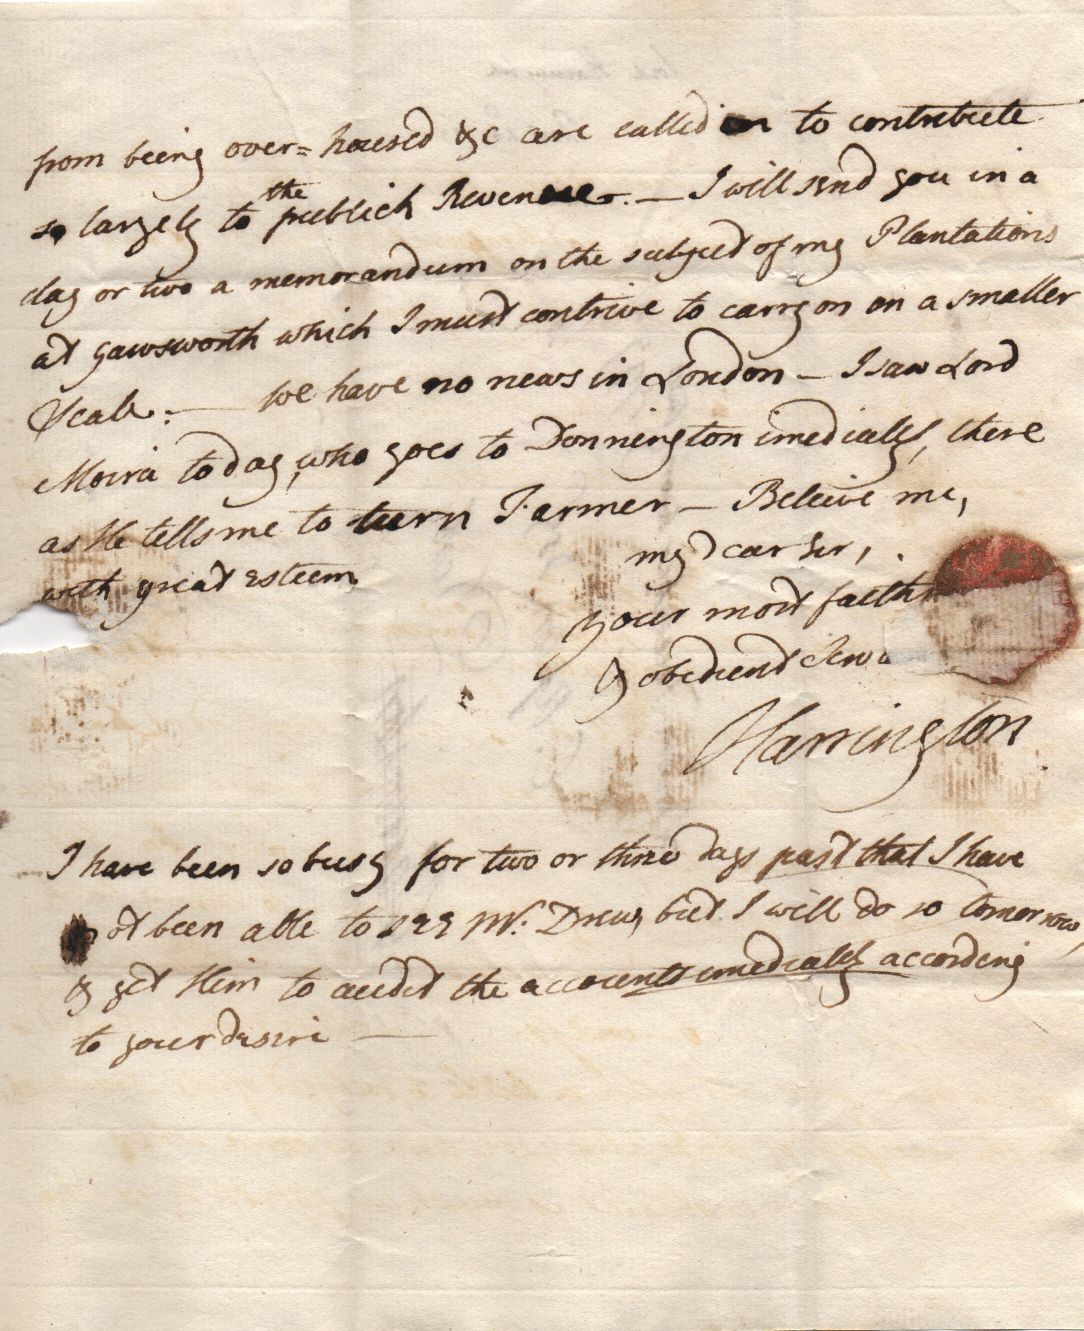 from being over= housed &c are called on to contribute
so largely to the publick Revenue. — I will send you in a
day or two a memorandum on the subject of my Plantations
at Gawsworth which I must contrive to carry on on a smaller
Scale. — We have no news in London — I saw Lord
Moira today, who goes to Donnington imediately, there
as He tells me to turn Farmer — Beleive me,
with great esteem
my dear Sir,
your most faith
& obedient Serv
Harrington
I have been so busy for two or three days past that I have
not been able to see Mr. Drew, but I will do so tomorrow,
& get Him to audit the accounts imediately according
to your desire —